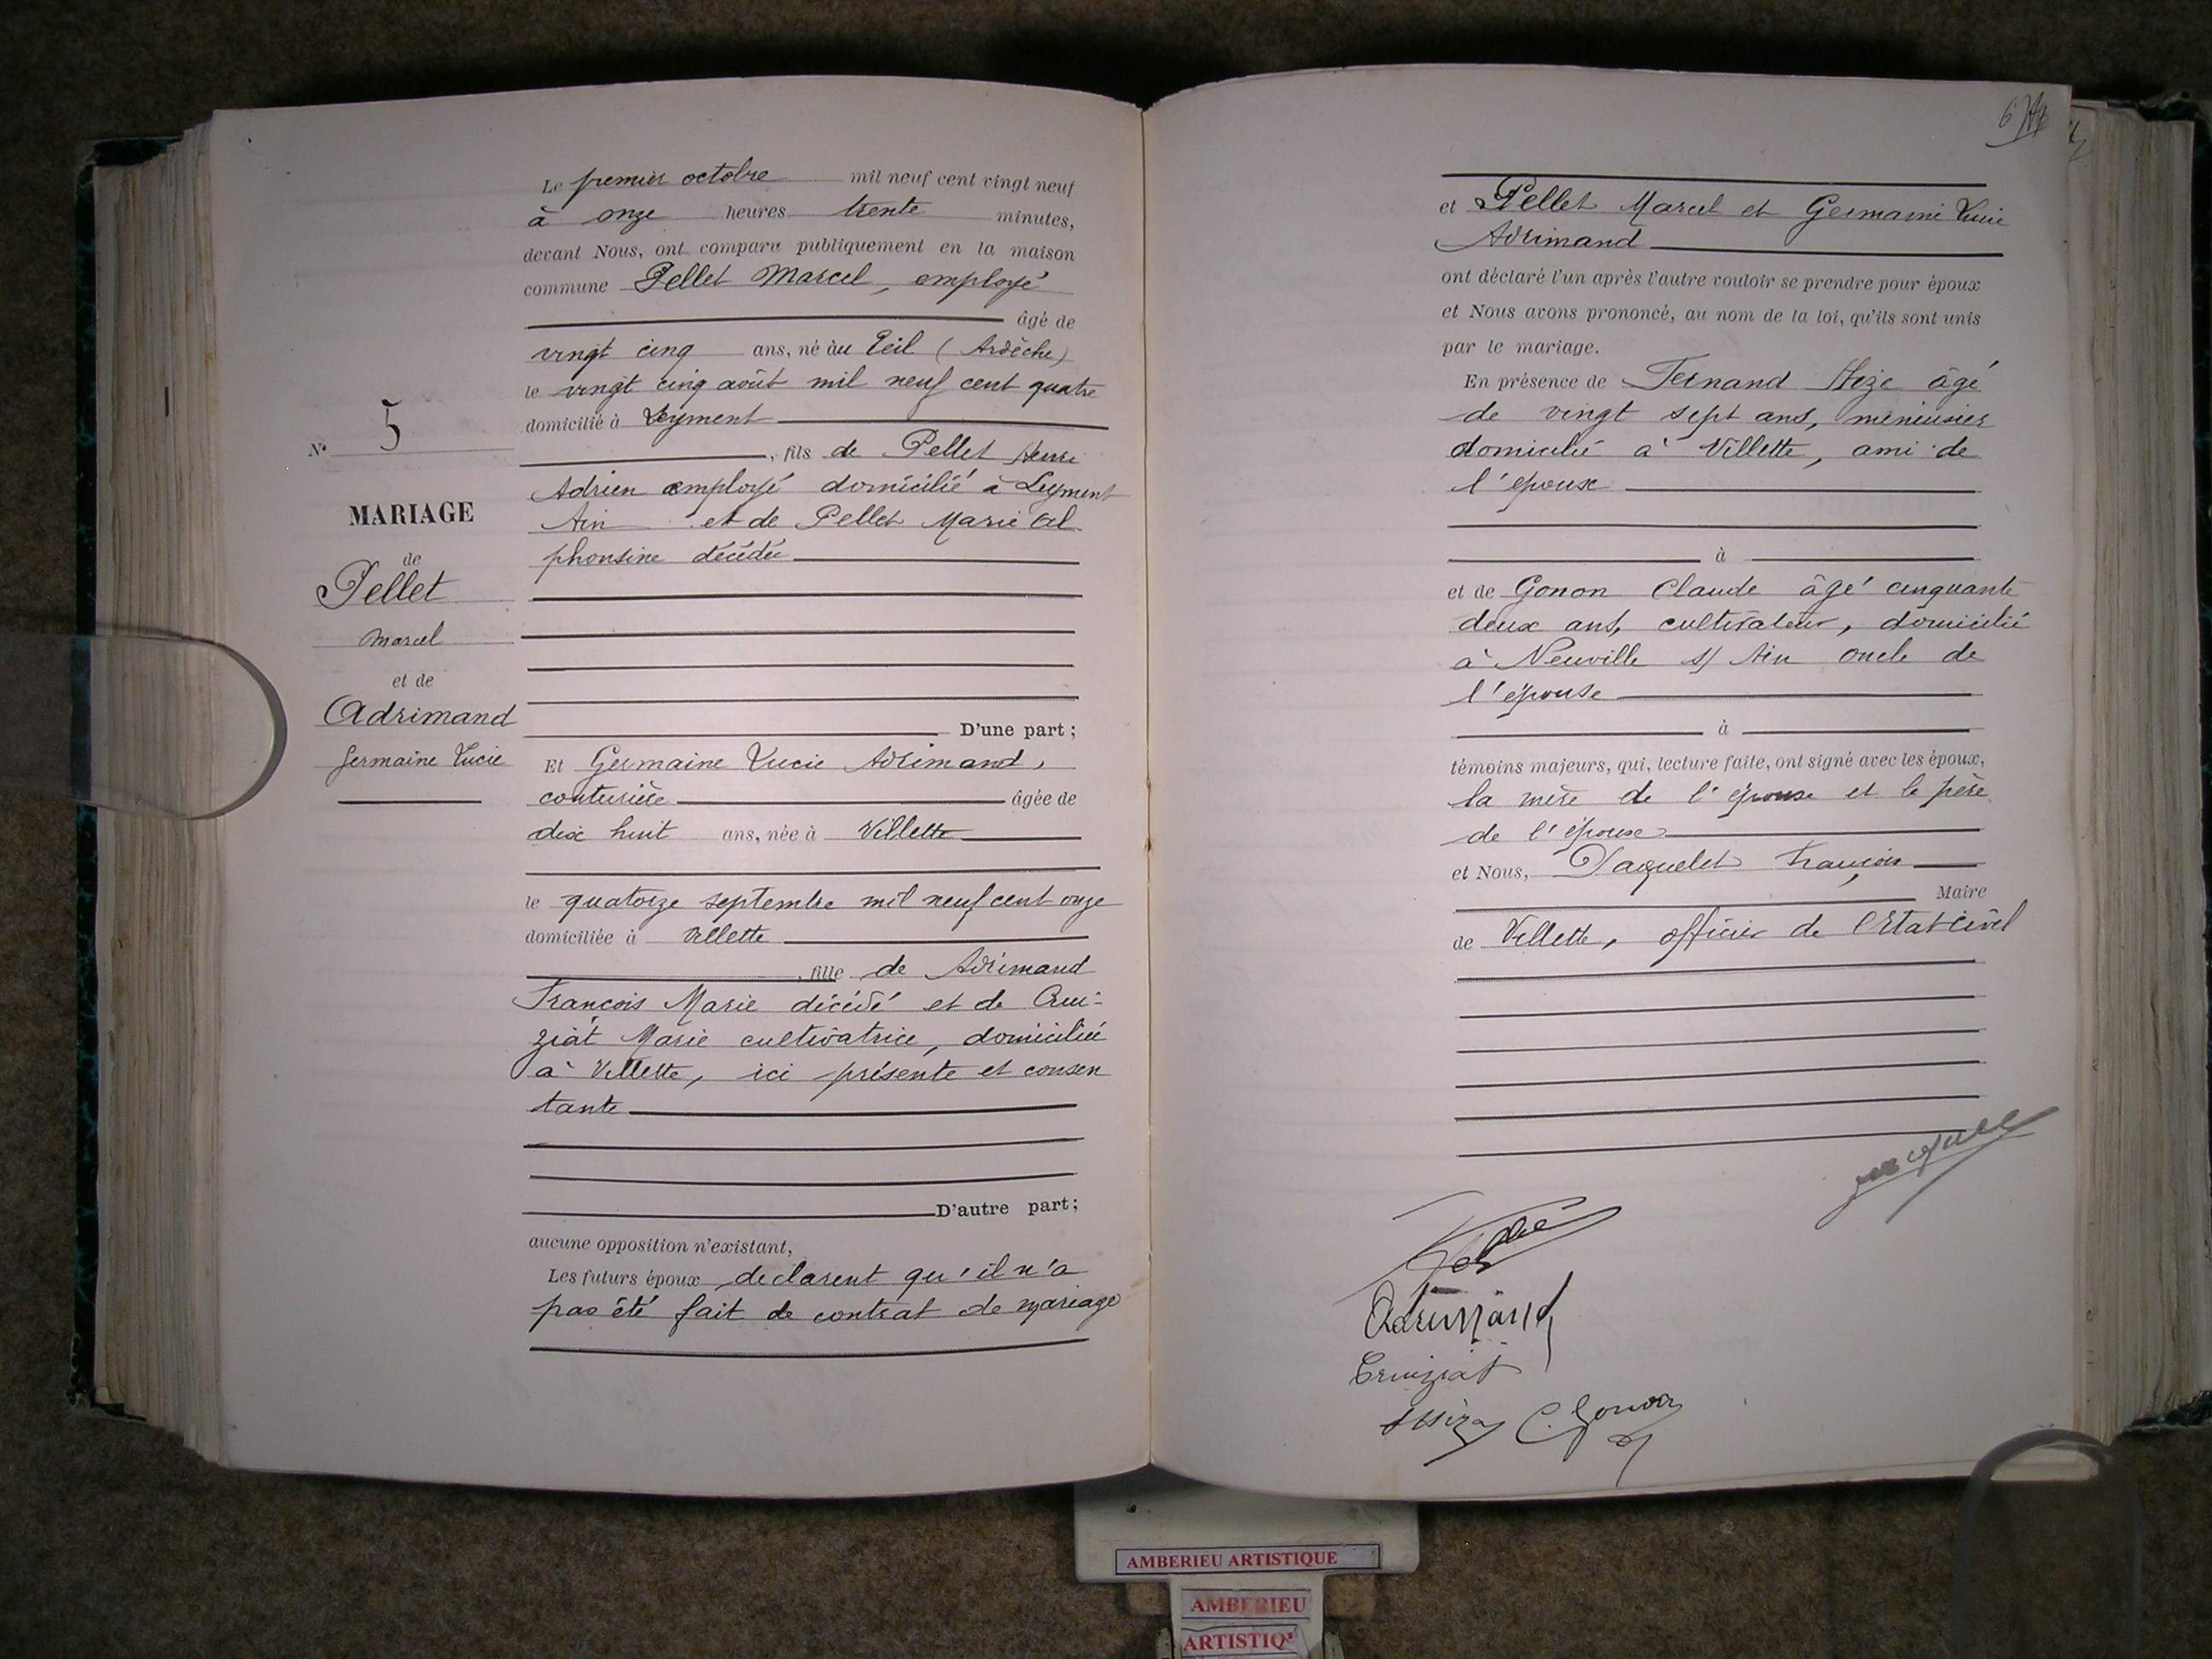 N° 5
MARIAGE
de
Pellet
Marcel
et de
Adrimand
Germaine Lucie
Le premier octobre mil neuf cent vingt neuf
à onze heures trente minutes,
devant Nous, ont comparu publiquement en la maison
commune Pellet Marcel, employé
âgé de
vingt cinq ans, né au Teil (Ardèche)
le vingt cinq août mil neuf cent quatre
domicilié à Leyment
, fils de Pellet Henri
Adrien employé domicilié à Leyment
Ain et de Pellet Marie Al
phonsine décédée
D'une part ;
Et Germaine Lucie Adrimand,
couturière âgée de
dix huit ans, née à Villette
le quatorze septembre mil neuf cent onze
domiciliée à Villette
, fille de Adrimand
François Marie décédé et de Crui-
ziat Marie cultivatrice, domiciliée
à Villette, ici présente et consen
tante
D'autre part ;
aucune opposition n'existant,
Les futurs époux declarent qu'il n'a
pas été fait de contrat de mariage
6
et Pellet Marcel et Germaine Lucie
Adrimand
ont déclaré l'un après l'autre vouloir se prendre pour époux
et Nous avons prononcé, au nom de la loi, qu'ils sont unis
par le mariage.
En présence de Fernand âgé
de vingt sept ans, menuisier
domicilié à Villette, ami de
l'epoux
à
et de Gonon Claude âgé cinquante
deux ans, cultivateur, domicilié
à Neuville s/ Ain oncle de
l'épouse
à
témoins majeurs, qui, lecture faite, ont signé avec les époux,
la mère de l'épouse et le père
de l'épouse
et Nous, François
Maire
de Villette, officier de l'Etat Civil
Adrimand
Cruiziat
C. Gonon
AMBERIEU ARTISTIQUE
AMBERIEU
ARTISTIQ